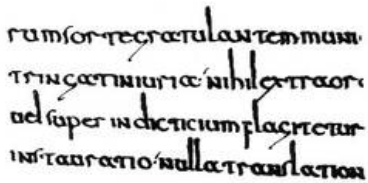 rum sorte gratulantem muni
tringat iniuriae nihil extraor
uel super indicticium flagitetur
instauratio nulla translation